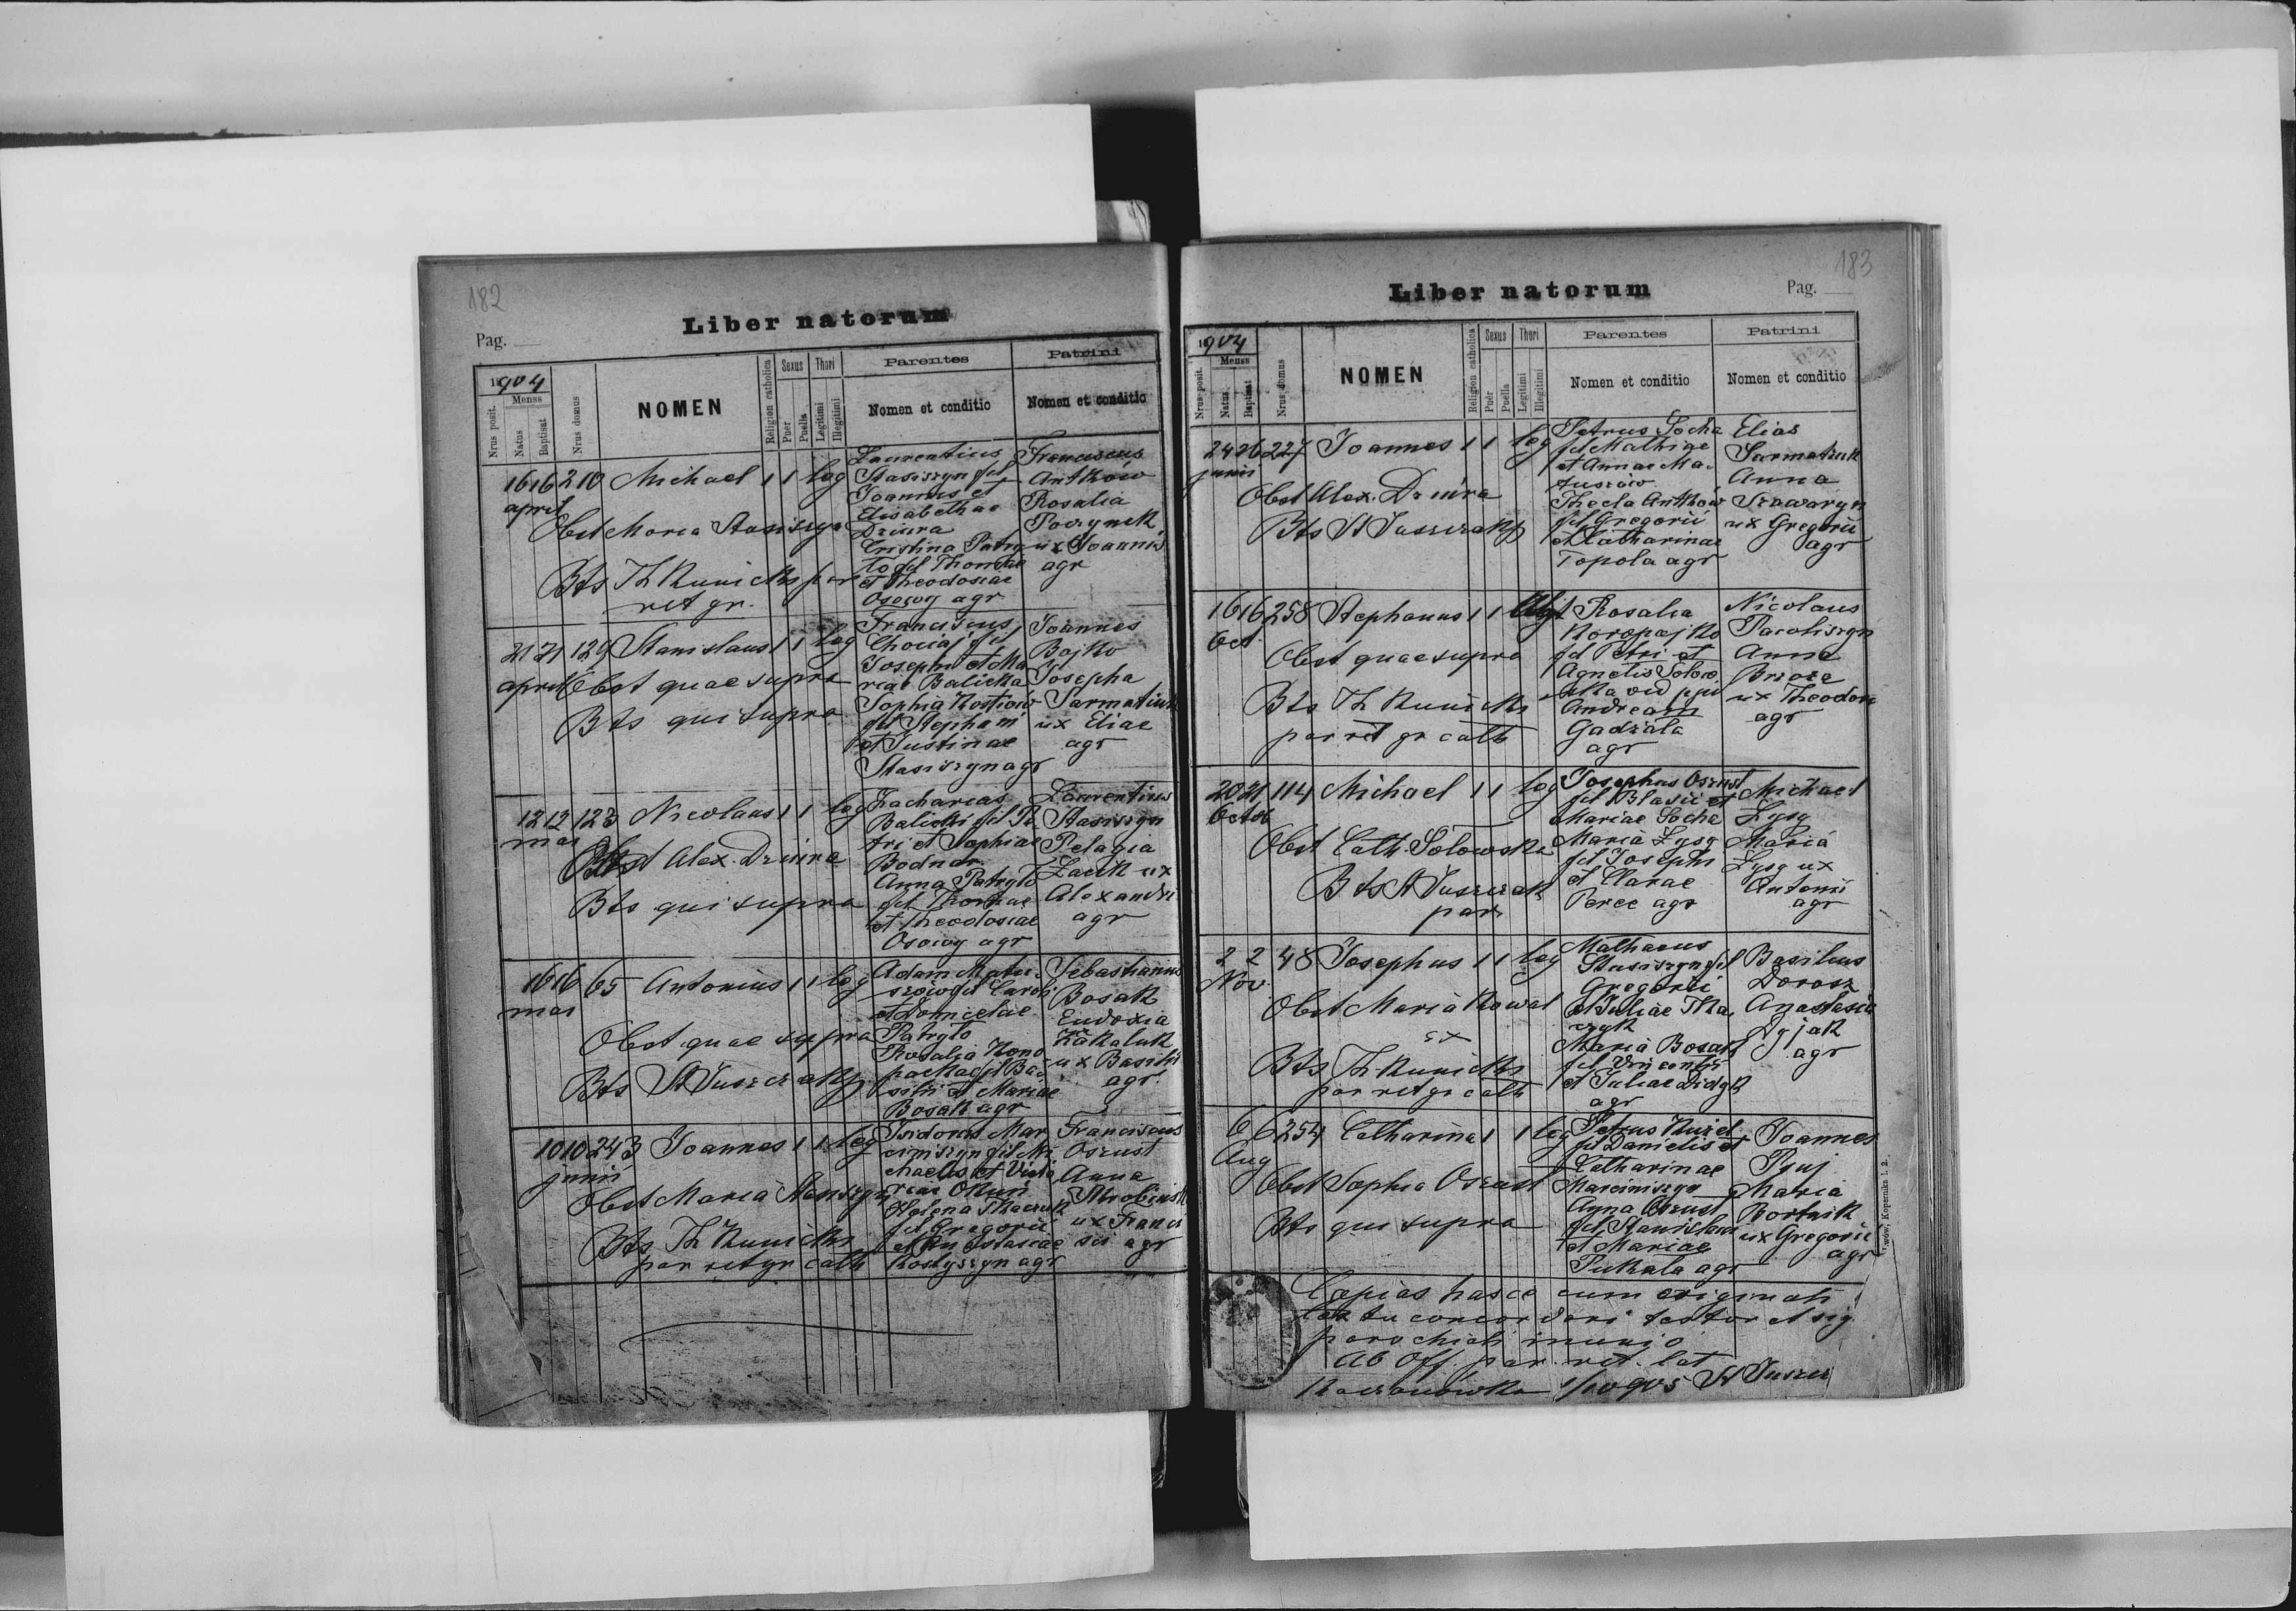 182
Pag.
Liber natorum
1904
Nrus posit.
Menss
Natus
Baptisat
Nrus domus
NOMEN
Religion catholica
Sexus
Puer
Puella
Thori
Legitimi
Illegitimi
Parentes
Nomen et conditio
Patrini
Nomen et conditio
16 16 210 Michael 1 1 leg
april
Obst Maria Stasiszyn
Bts Th Kunicki par
rit gr.
Laurentius
Stasiszyn fil
Joannis et
Elisabethae
Dziura
Cristina Patry
lo fil Thomae
et Theodosiae
Osowy agr
Franciscus
Antków
Rosalia
ux Joannis
agr
21 21 129 Stanislaus 1 1 leg
april Obst quae supra
Bts qui supra
Franciscus
Chociaj fil
Josephi et Ma
riae Balicka
Sophia Kostiów
fil Stephani
et Justinae
Stasiszyn agr
Joannes
Bojko
Josepha
Sarmatiuk
ux Eliae
agr
12 12 123 Nicolaus 1 1 leg
mai
Obst Alex. Dziura
Bts qui supra
Zacharias
Balicki fil Pe
tri et Sophiae
Bodnar
Anna Patrylo
fil Thomae
et Theodosiae
Osowy agr
Laurentius
Stasiszyn
Pelagia
Zacik ux
Alexandri
agr
16 16 65 Antonius 1 1 leg
mai
Obst quae supra
Bts St Juszczak
Adam Matu
szów fil Caroli
et Domicelae
Patrylo
Rosalia Kono
packa fil Ba
silii et Mariae
Bosak agr
Sebastianus
Bosak
Eudoxia
Kakaluk
ux Basilii
agr.
10 10 243 Joannes 1 1 leg
junii
Obst Maria Stasiszyn
Bts Th Kunicki
par rit gr cath
Isidorus Mar
ciniszyn fil Mi
chaelis et Victo
riae Okuń
Helena Tkaczuk
fil Gregorii
et Anastasiae
Kostyszyn agr
Franciscus
Oszust
Anna
ux Franci
sci agr
183
Liber natorum
Pag.
1904
Nrus posit.
Menss
Natus.
Baptisat
Nrus domus
NOMEN
Religion catholica
Sexus
Puer
Puella
Thori
Legitimi
Illegitimi
Parentes
Nomen et conditio
Patrini
Nomen et conditio
24 26 227 Joannes 1 1 leg
junii
Obst Alex. Dziura
Bts St Juszczak
Petrus Socha
fil Mathiae
et Annae Ma
tuszów
Thecla Antków
fil Gregorii
et Catharinae
Topola agr
Elias
Sarmatiuk
Anna
Szawaryn
ux Gregorii
agr
16 16 258 Stephanus 1 1
Oct
Obst quae supra
Bts Th Kunicki
par rit gr cath
Rosalia
Koropajko
fil Petri et
Agnetis Solow
ska vid post
Andream
Gadziała
agr
Nicolaus
Pawliszyn
Anna
ux Theodori
agr
20 21 114 Michael 1 1 leg
Octob
Obst Cath. Solowska
Bts St Juszczak
par
Josephus Oszust
fil Blasii et
Mariae Socha
Maria Lysy
fil Josephi
et Clarae
Perec agr
Michael
Lysy
Maria
Lysy ux
Antonii
agr
2 2 48 Josephus 1 1 leg
Nov
Obst Maria Kowal
ex
Bts Th Kunicki
par rit gr cath
Mathaeus
Stasiszyn fil
Gregorii
et Juliae Tka
czyk
Maria Bosak
fil Vincentii
et Juliae Didyk
agr
Basilius
Dorosz
Anastasia
Dyjak
agr
6 6 254 Catharina 1 1 leg
Aug
Obst Sophia Oszust
Bts qui supra
Petrus Kuziel
fil Danielis et
Catharinae
Marciniszyn
Anna Oszust
fil Stanislai
et Mariae
Pukala agr
Joannes
Pyuj
Maria
Bortnik
ux Gregorii
agr
Copias hasce cum originali
textu concordari testor et sig
parochiali munio
Ab Off. par. rit. lat
Kaczanówka 1/10 905 St Juszcz
Lwów, Kopernika l. 2.